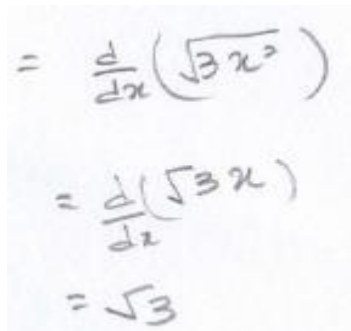 = d/dx (√3x²)
= d/dx (√3 x)
= √3